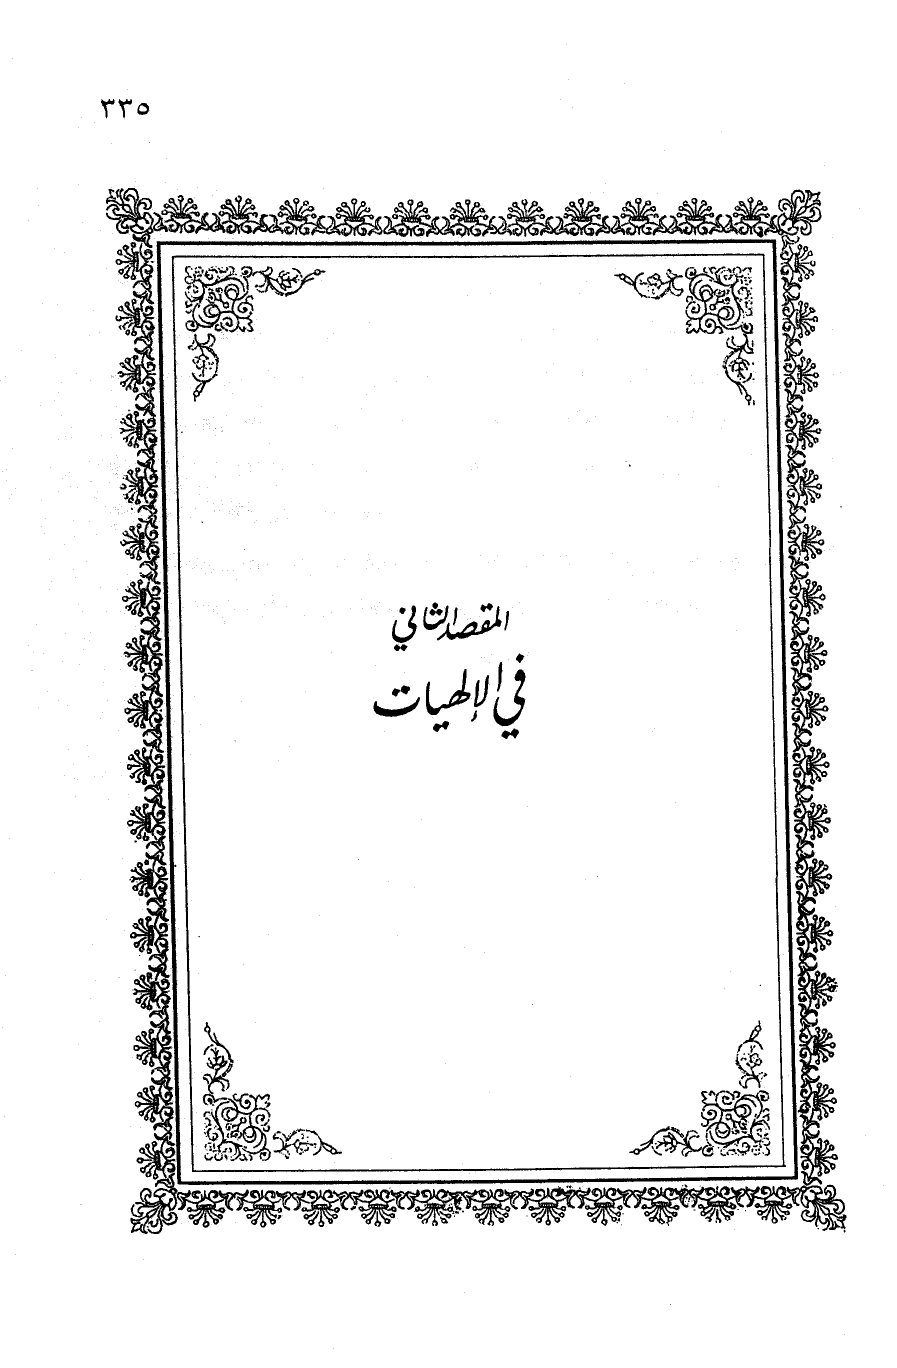 ٣٣٥
المقصد الثاني
في الإلهيات